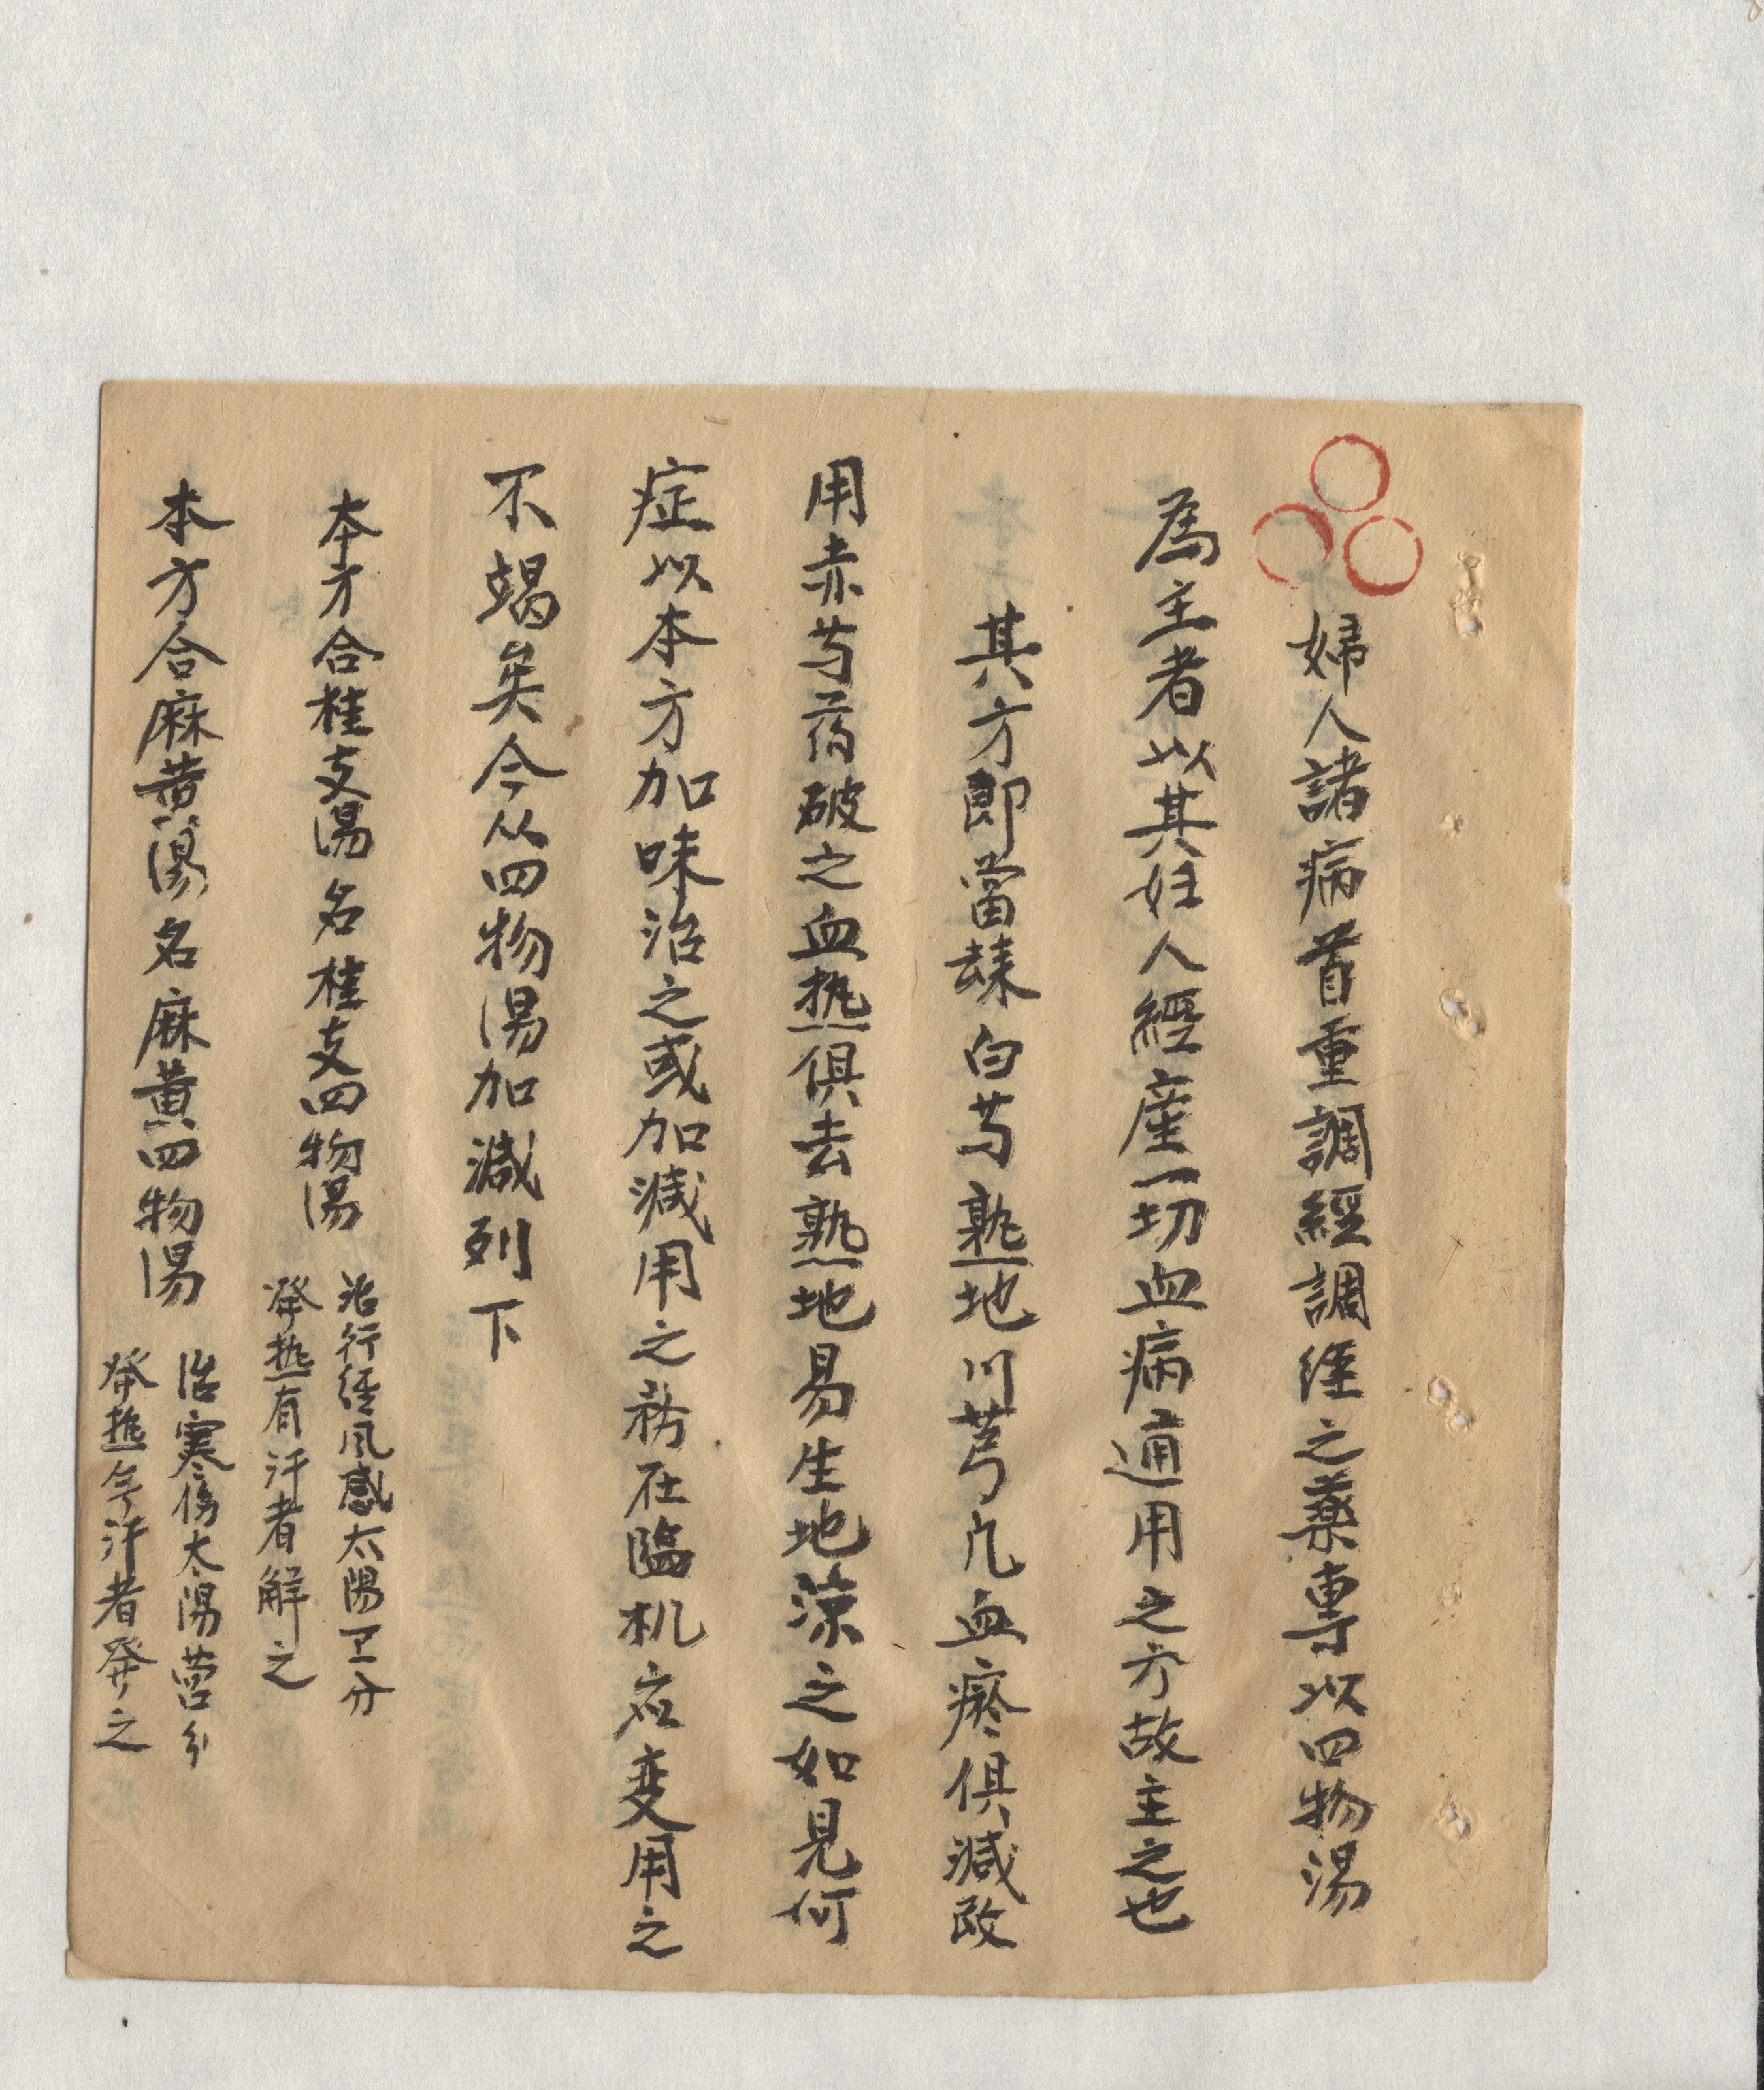 婦人諸病首重調經調經之藥專以四物湯
為主者以其妊人經產一切血病通用之方故主之也
其方即當歸白芍熟地川芎凡血瘀俱減改
用赤芍药破之血热俱去熟地易生地涼之如見何
症以本方加味治之或加減用之務在臨机应变用之
不竭矣今从四物湯加減列下
本方合桂支湯名桂支四物湯
治行經风感太陽卫分
發热有汗者解之
本方合麻黄湯名麻黃四物湯
治寒傷太陽营分
發热無汗者發之